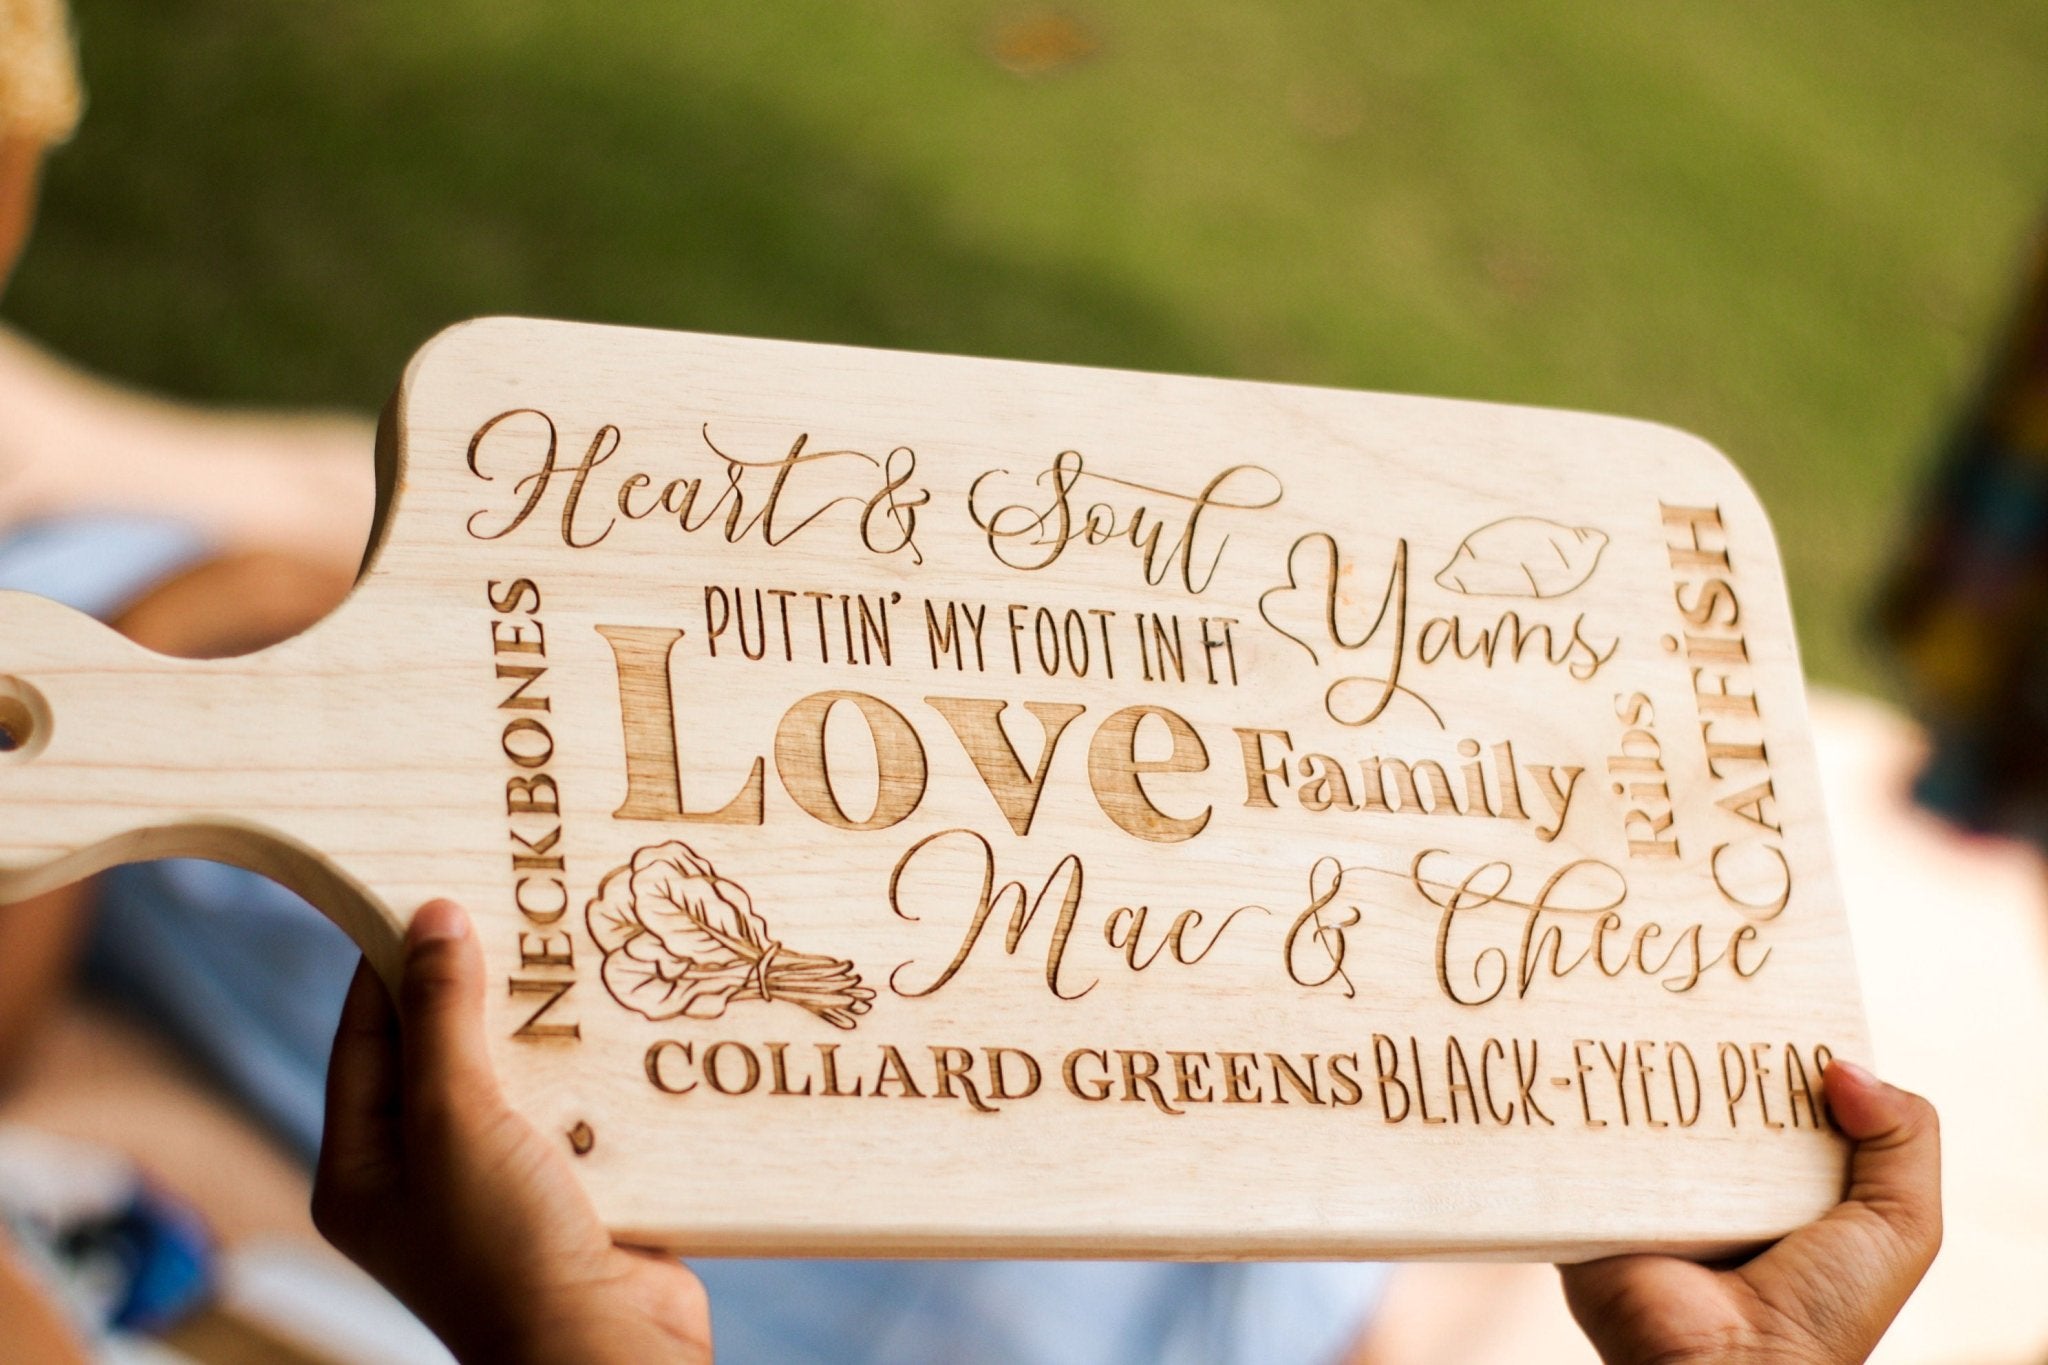 Heart & Soul
NECKBONES
PUTTIN' MY FOOT IN IT
Yams
CATFiSH
Love
Family
Ribs
Mac & Cheese
COLLARD GREENS
BLACK-EYED PEAS